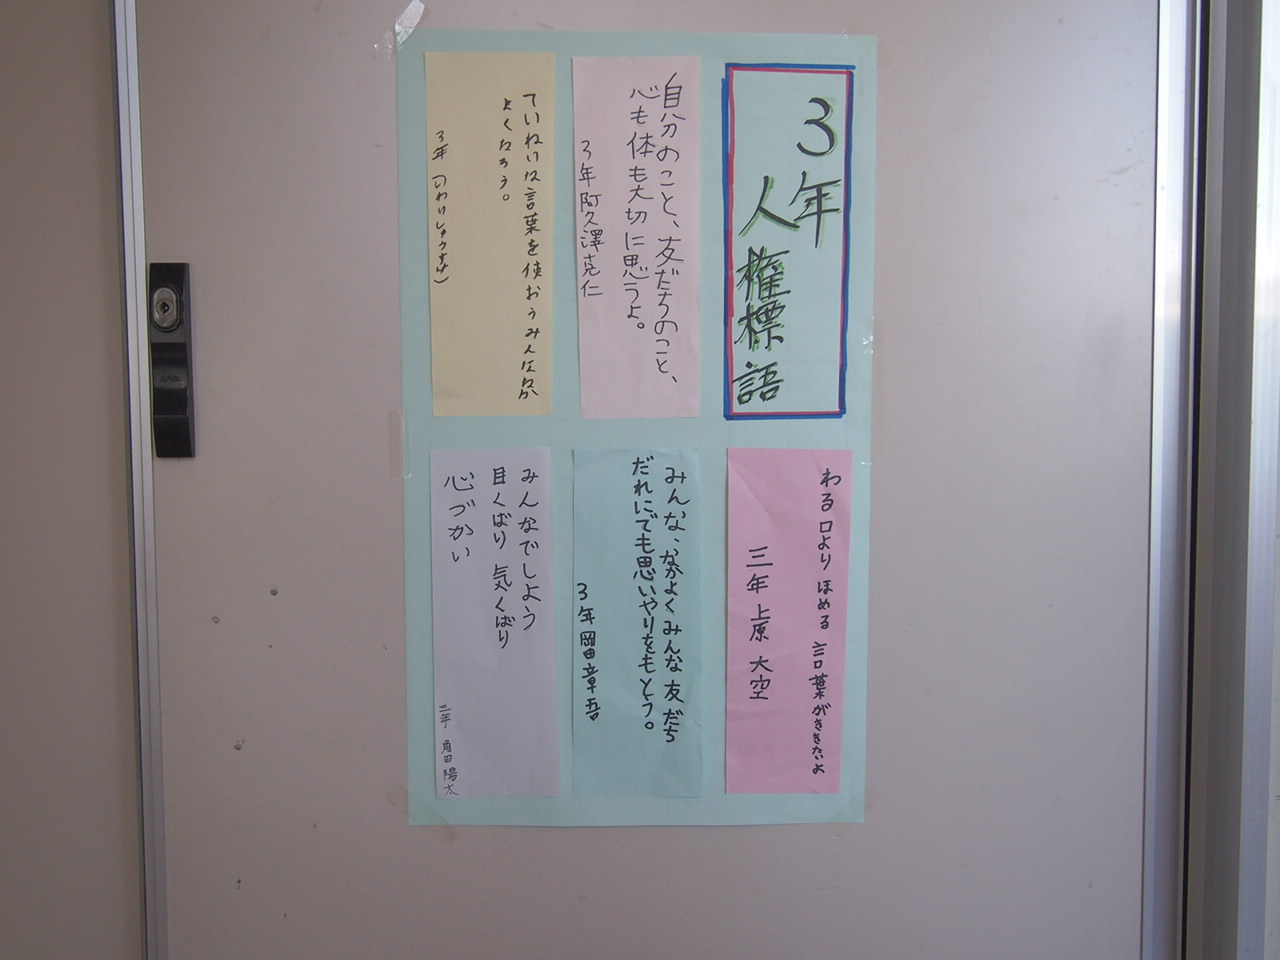 3年
人権標語
自分のこと、友だちのこと、
心も体も大切に思うよ。
3年 阿久澤克仁
ていねいな言葉を使おうみんなが
よくなろう。
3年
わる口より ほめる 言葉がききたいよ
三年 上原 大空
みんな、なかよくみんな友だち
だれにでも思いやりをもとう。
3年 岡田章吾
みんなでしよう
目くばり 気くばり
心づかい
三年 角田 陽太